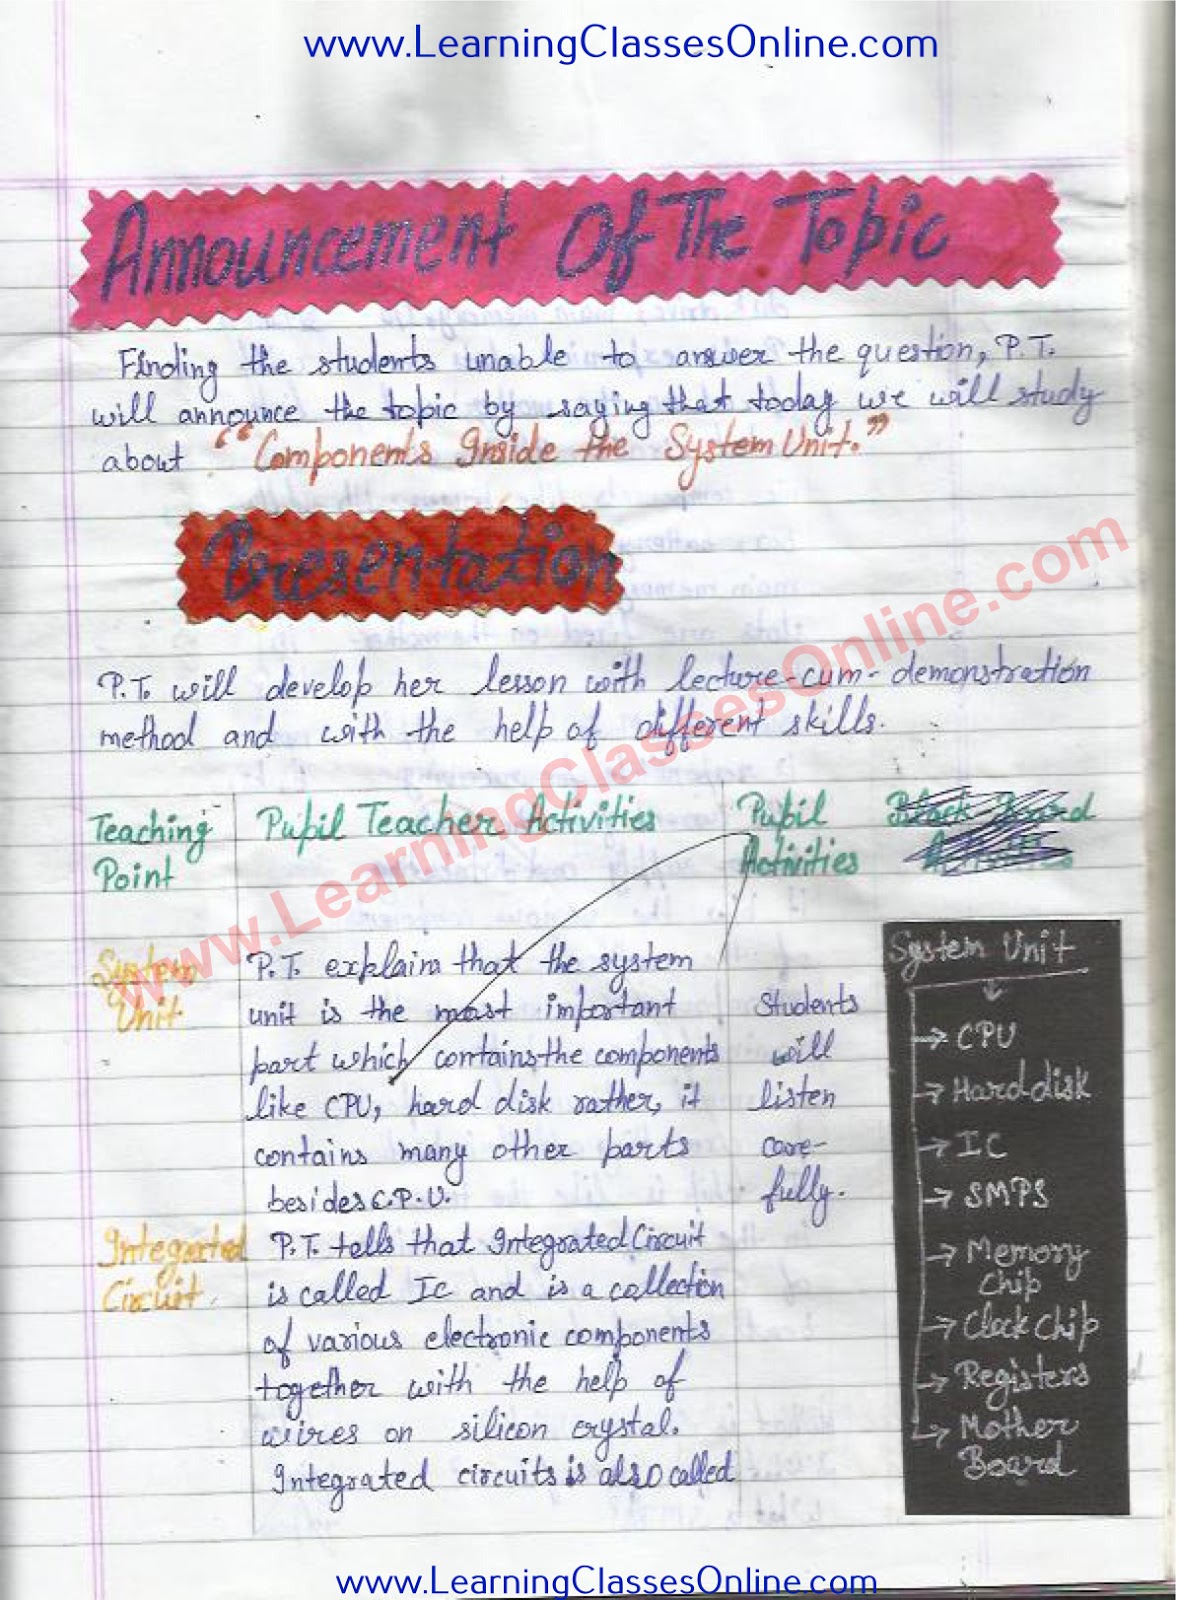 www.LearningClassesOnline.com
Announcement Of The Topic
Finding the students unable to answer the question, P.T.
will announce the topic by saying that today we will study
about ““Components Inside the System Unit.”
Presentation
P.T. will develop her lesson with lecture-cum-demonstration
method and with the help of different skills.
www.LearningClassesOnline.com
Teaching
Point
Pupil Teacher Activities
Pupil
Activities
Black Board
Activities
System
Unit
P.T. explains that the system
unit is the most important
part which contains the components
like CPU, hard disk rather, it
contains many other parts
besides C.P.U.
Students
will
listen
care-
fully.
Integarted
Circuit
P.T. tells that Integrated Circuit
is called Ic and is a collection
of various electronic components
together with the help of
wires on silicon crystal.
Integrated circuits is also called
System Unit
CPU
Hard disk
IC
SMPS
Memory
Chip
Clock Chip
Registers
Mother
Board
www.LearningClassesOnline.com